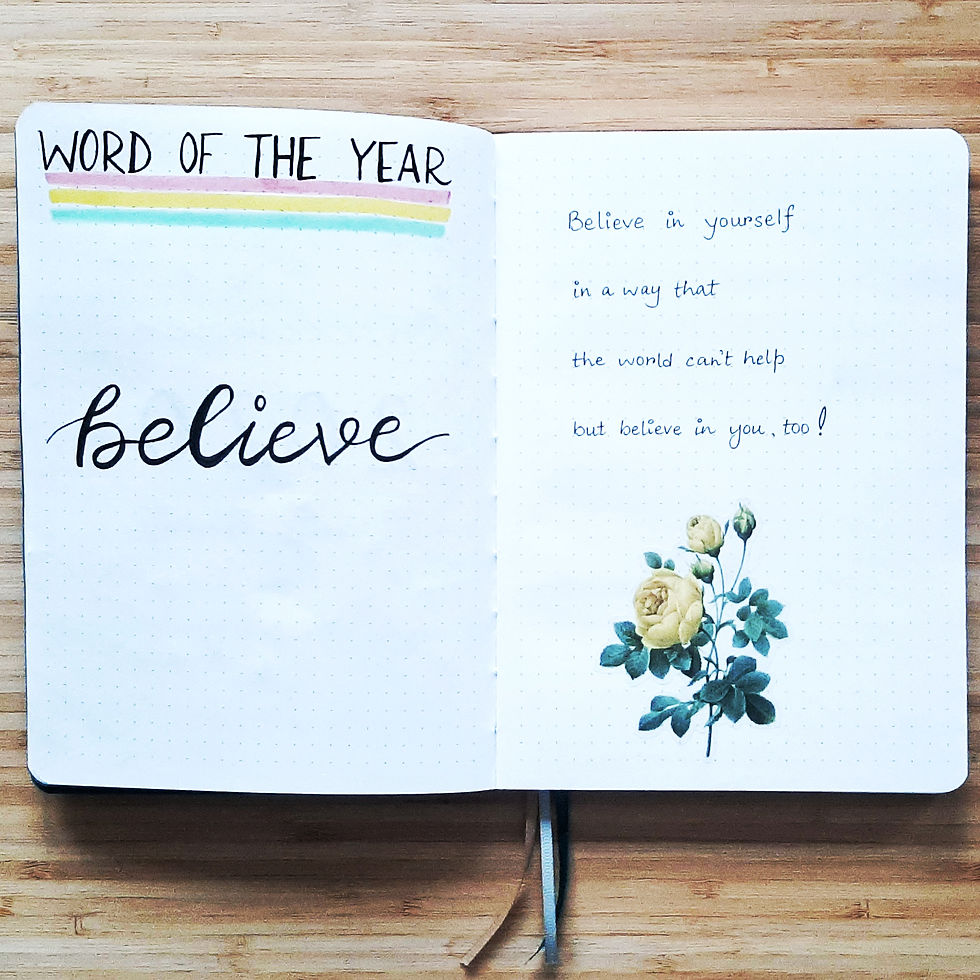 WORD OF THE YEAR
believe
Believe in yourself
in a way that
the world can't help
but believe in you, too!